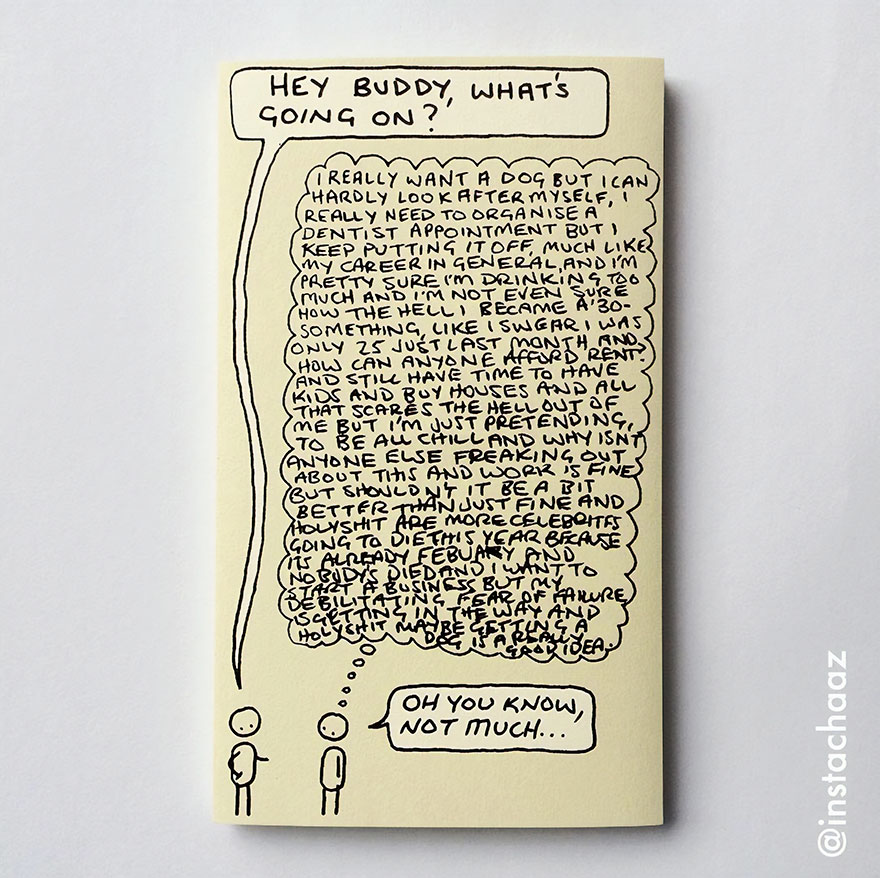 HEY BUDDY, WHAT'S
GOING ON?
I REALLY WANT A DOG BUT I CAN
HARDLY LOOK AFTER MYSELF, I
REALLY NEED TO ORGANISE A
DENTIST APPOINTMENT BUT I
KEEP PUTTING IT OFF, MUCH LIKE
MY CAREER IN GENERAL, AND I'M
PRETTY SURE I'M DRINKING TOO
MUCH AND I'M NOT EVEN SURE
HOW THE HELL I BECAME A '30-
SOMETHING, LIKE I SWEAR I WAS
ONLY 25 JUST LAST MONTH AND
HOW CAN ANYONE AFFORD RENT?
AND STILL HAVE TIME TO HAVE
KIDS AND BUY HOUSES AND ALL
THAT SCARES THE HELL OUT OF
ME BUT I'M JUST PRETENDING,
TO BE ALL CHILL AND WHY ISN'T
ANYONE ELSE FREAKING OUT
ABOUT THIS AND WORK IS FINE
BUT SHOULDN'T IT BE A BIT
BETTER THAN JUST FINE AND
HOLYSHIT ARE MORE CELEBRITES
GOING TO DIE THIS YEAR BECAUSE
ITS ALREADY FEBUARY AND
NOBUDY'S DIED AND I WANT TO
START A BUSINESS BUT MY
DEBILITATING FEAR OF FAILURE
IS GETTING IN THE WAY AND
HOLYSHIT MAYBE GETTING A
DOG IS A REALLY
GOOD IDEA.
OH YOU KNOW,
NOT MUCH...
@instachaaz